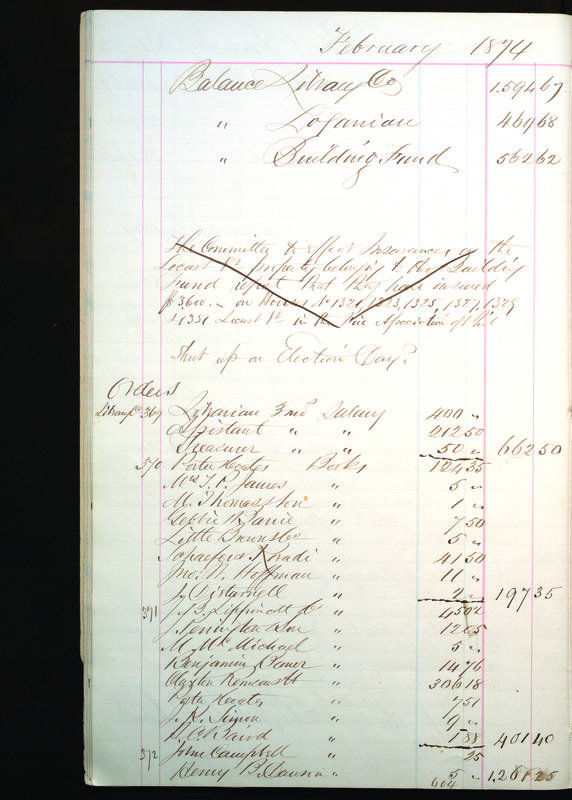 February 1874
Balance Library Co 1.594 67
" Loganian 469 68
" Building Fund 562 62
The Committee to effect Insurance, on the
Locust St property belonging to the Building
Fund report that they have insured
$3,600.- on Houses No 1321, 1323, 1325, 1327, 1329
& 1331 Locust St in the Fire Association of Phil
Shut up on Election Day?
Orders
Library Co 369 Librarian 3 mo Salary 400 "
Assistant " " 212 50
Treasurer " " 50 " 662 50
370 Porter & Coates Books 124 35
Mrs T. P. James " 5 "
M. Thomas & Son " 1 "
" 7 50
Little Brown & Co " 5 "
Schaefer & Koradi " 41 50
Jno. W. Hoffman " 11 "
J. Disturnell " 2 " 197 35
371 J. B. Lippincott & Co " 45 02
J. Penington & Son " 12 65
M. McMichael " 5 "
Benjamin " 14 76
Claxton Remsen & H " 306 18
Porter & Coates " 7 51
J. R. Simon " 9 "
H. C. Baird " 1 88 401 40
372 John Campbell " 25
Henry B. Dawson " 5 " 1.261 25
604